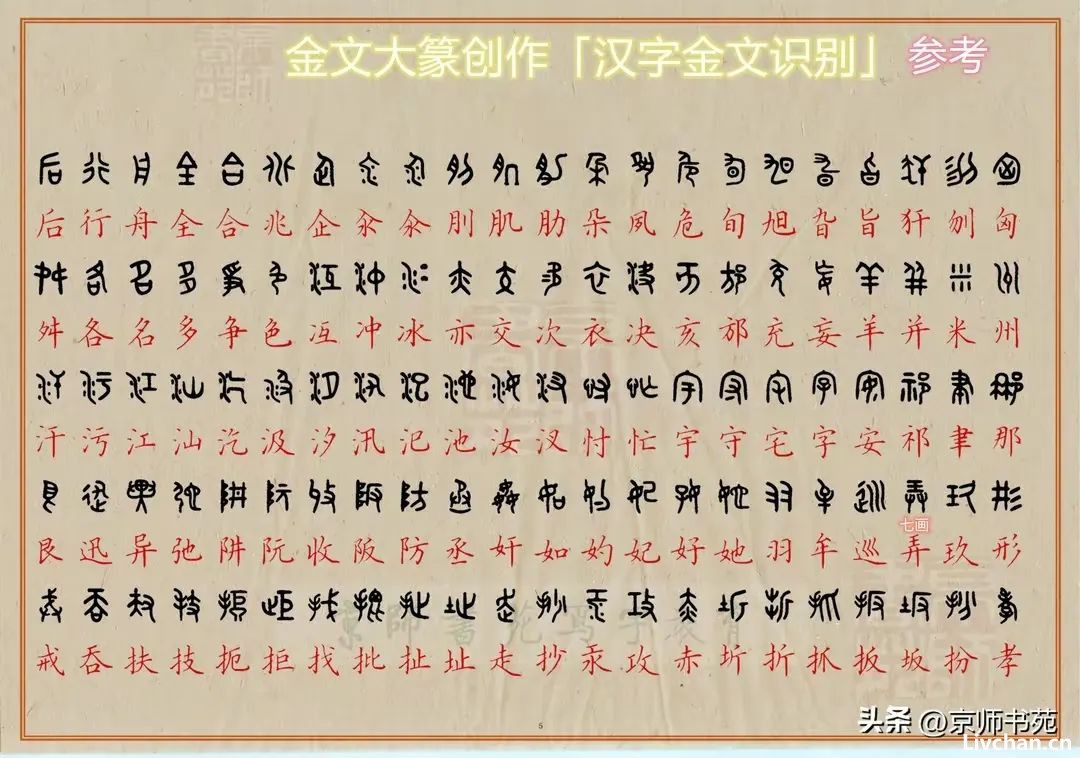 金文大篆创作「汉字金文识别」 参考
后行舟全合兆企氽汆刖肌肋朵夙危旬旭旮旨犴刎匈
舛各名多争色冱冲冰亦交次衣决亥邡充妄羊并米州
汗污江汕汔汲汐汛汜池汝汊忖忙宇守宅字安祁聿那
七画
艮迅异弛阱阮收阪防丞奸如妁妃好她羽牟巡弄玖形
戒吞扶技扼拒找批扯址走抄汞攻赤圻折抓扳坂扮孝
京師書苑寫字教育
5
头条 @京师书苑
Livchan.cn